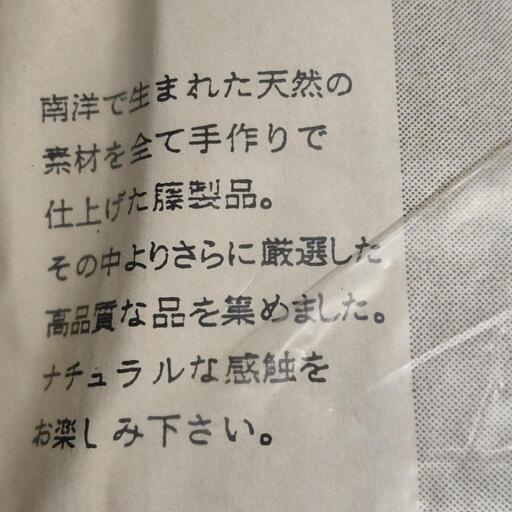 南洋で生まれた天然の
素材を全て手作りで
仕上げた籐製品。
その中よりさらに厳選した
高品質な品を集めました。
ナチュラルな感触を
お楽しみ下さい。